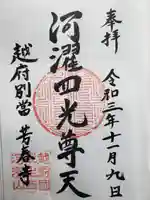 奉拝
令和三年十一月九日
河濯四光尊天
越府別當
芳春寺